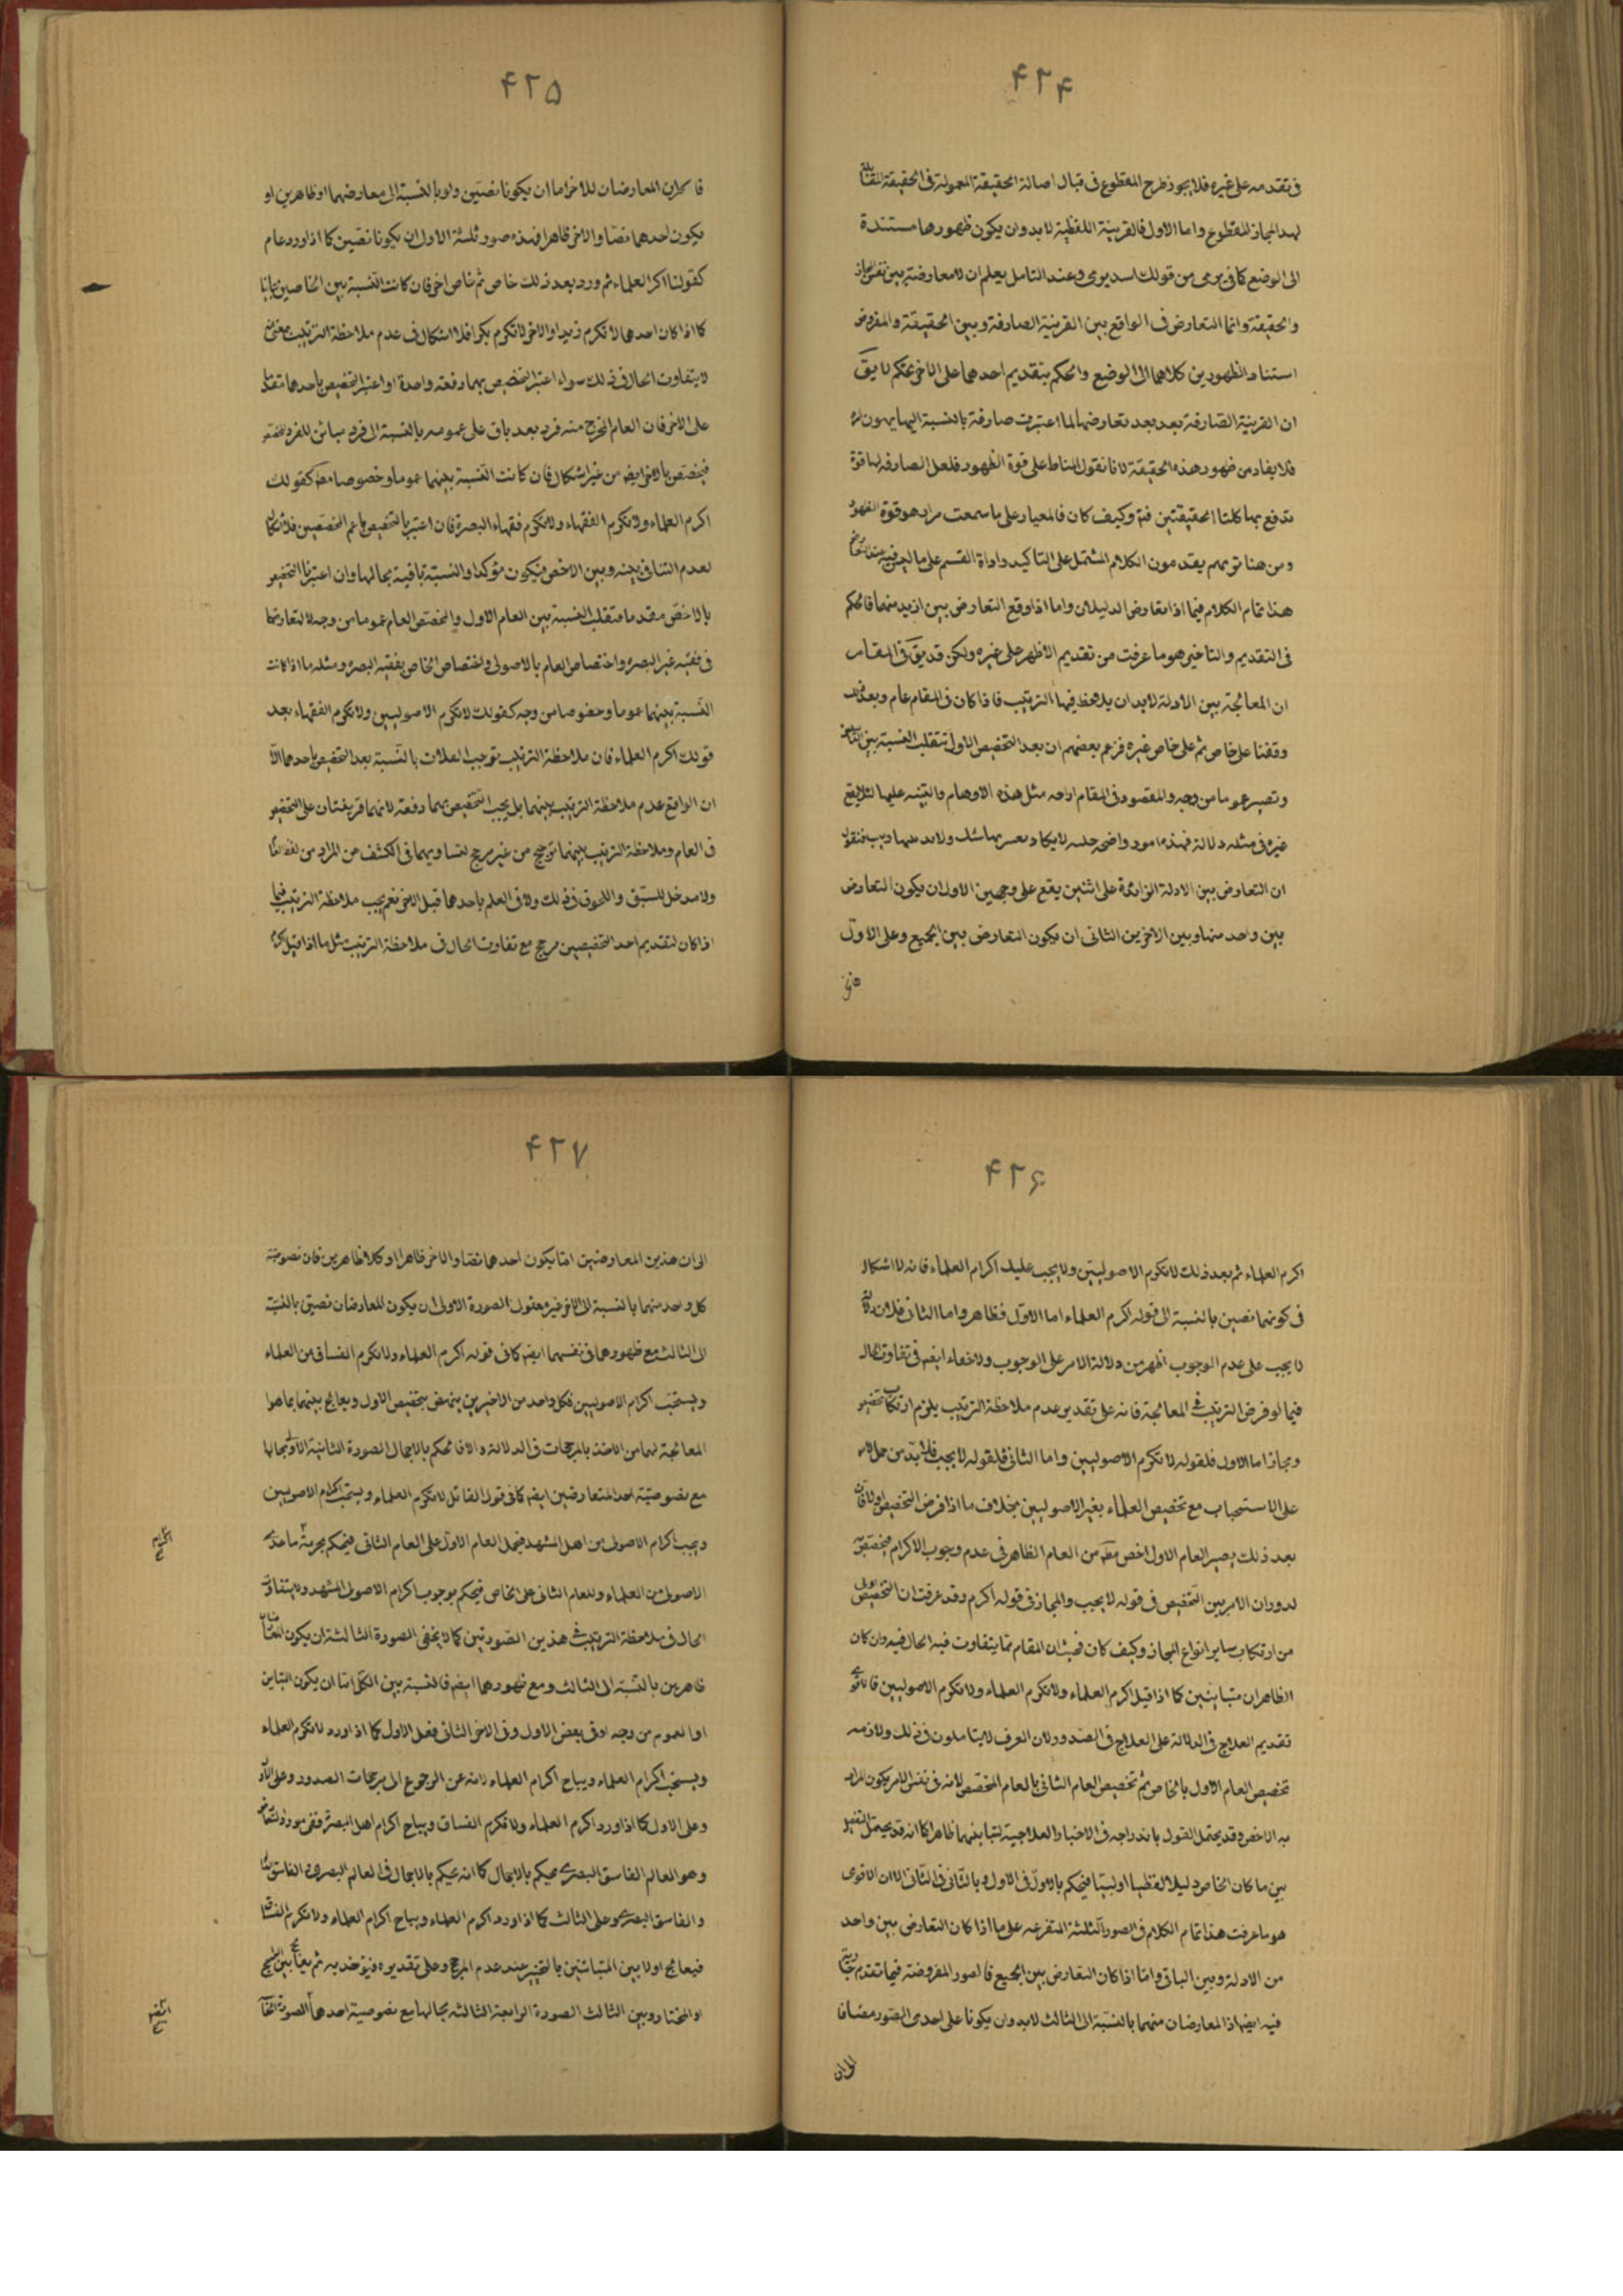 ۴۲۴
فی تقدمه علی غیره فلا یجوز طرح المقطوع فی قبال اصالة الحقیقة المعمولة فی الحقیقة المقابلة
لهذا المجاز المقطوع واما الاول فالقرینة اللفظیة لابد وان یکون ظهورها مستندة
الی الوضع کما فی یرمی من قولک اسد یرمی وعند التامل یعلم ان لا معارضة بین نفس المجاز
والحقیقة وانما التعارض فی الواقع بین القرینة الصارفة وبین الحقیقة والمفروض
استناد الظهورین کلاهما الی الوضع والحکم بتقدیم احدهما علی الاخر تحکم لا یق
ان القرینة الصارفة بعد بعد تعارضها لما اعتبرت صارفة بالنسبة الیها یهون
فلا یفاد من ظهور هذه الحقیقة لانا نقول المناط علی قوة الظهور فلعل الصارفة لها قوة
تدفع بها کلتا الحقیقتین وکیف کان فالمعیار علی ما سمعت مرارا هو قوة الظهور
ومن هنا تریهم یقدمون الکلام المشتمل علی التاکید واداة القسم علی ما لیس فیه عند التعارض
هذا تمام الکلام فیما اذا تعارض الدلیلان واما اذا وقع التعارض بین ازید منهما فالحکم
فی التقدیم والتاخیر هو ما عرفت من تقدیم الاظهر علی غیره ولکن قد یق فی المقام
ان المعالجة بین الادلة لابد ان یلاحظ فیها الترتیب فاذا کان فی المقام عام وبعد
وقفنا علی خاص ثم علی خاص غیره فزعم بعضهم ان بعد التخصیص الاول تنقلب النسبة بین
وتصیر عموما من وجه والمقصود فی المقام ازاحة مثل هذه الاوهام والتنبیه علیها لئلا یقع
غیره فی مثله فهذه امور واضحة جلیة لا یکاد
ان التعارض بین الادلة الزائدة علی اثنین یقع علی وجهین الاول ان یکون التعارض
بین واحد منها وبین الاخرین الثانی ان یکون التعارض بین الجمیع وعلی الاول
۴۲۵
فاما ان المعارضان للاخر اما ان یکونا نصین ولو بالنسبة الی معارضهما او ظاهرین او
یکون احدهما نصا والاخر ظاهرا فهذه صور ثلثة الاول ان یکونا نصین کما اذا ورد عام
کقولنا اکرم العلماء ثم ورد بعد ذلک خاص ثم خاص اخر فان کانت النسبة بین الخاصین تباینا
کما اذا کان احدهما لا تکرم زیدا والاخر لا تکرم بکرا فلا اشکال فی عدم ملاحظة الترتیب بمعنی
لا یتفاوت الحال فی ذلک سواء اعتبر التخصیص بهما دفعة واحدة او اعتبر التخصیص باحدهما مقدما
علی الاخر فان العام المخرج منه فرد بعد باق علی عمومه بالنسبة الی فرد مباین للفرد المخصص
فیخصص بالاخر ایضا من غیر اشکال فان کانت النسبة بینهما عموما وخصوصا مط کقولک
اکرم العلماء ولا تکرم الفقهاء ولا تکرم فقهاء البصرة فان اعتبر بالتخصیص باعم المخصصین فلا اشکال
لعدم التنافی بینه وبین الاخص فیکون مؤکدا والنسبة باقیة بحالها وان اعتبرنا التخصیص
بالاخص مقدما فتنقلب النسبة بین العام الاول والمخصص العام عموما من وجه لتعارضهما
فی فقیه غیر البصرة واختصاص العام بالاصولی واختصاص الخاص بفقیه البصرة ومثله ما اذا کانت
النسبة بینهما عموما وخصوصا من وجه کقولک لا تکرم الاصولیین ولا تکرم الفقهاء بعد
قولک اکرم العلماء فان ملاحظة الترتیب توجب انقلاب النسبة بعد التخصیص باحدهما الا
ان الواقع عدم ملاحظة الترتیب بینهما بل یجب التخصیص بهما دفعة لانهما قرینتان علی التخصیص
فی العام وملاحظة الترتیب بینهما ترجیح من غیر مرجح لتساویهما فی الکشف عن المراد من لفظ
ولا مدخل للسبق واللحوق فی ذلک ولا فی العلم باحدهما قبل الاخر نعم یجب ملاحظة الترتیب فیما
اذا کان لتقدیم احد التخصیصین مرجح مع تفاوت الحال فی ملاحظة الترتیب مثل ما اذا قیل اکرم
۴۲۶
اکرم العلماء ثم بعد ذلک لا تکرم الاصولیین ولا یجب علیک اکرام العلماء فانه لا اشکال
فی کونهما نصین بالنسبة الی قوله اکرم العلماء اما الاول فظاهر واما الثانی فلان دلالة
لا یجب علی عدم الوجوب اظهر من دلالة الامر علی الوجوب ولا خفاء ایضا فی تفاوت الحال
فیما لو فرض الترتیب فی المعالجة فانه علی تقدیر عدم ملاحظة الترتیب یلزم ارتکاب تخصیص
ومجاز اما الاول فلقوله لا تکرم الاصولیین واما الثانی فلقوله لا یجب فلابد من حمل الامر
علی الاستحباب مع تخصیص العلماء بغیر الاصولیین بخلاف ما اذا فرض التخصیص اولا فان
بعد ذلک یصیر العام الاول اخص مط من العام الظاهر فی عدم وجوب الاکرام فیخصص
لدوران الامر بین التخصیص فی قوله لا یجب والمجاز فی قوله اکرم وقد عرفت ان التخصیص اولی
من ارتکاب سایر انواع المجاز وکیف کان فحیث ان المقام مما یتفاوت فیه الحال فیه وان کان
الظاهران متباینین کما اذا قیل اکرم العلماء ولا تکرم العلماء ولا تکرم الاصولیین
تقدیم العلاج فی الدلالة علی العلاج فی الصدور لان العرف لا یتاملون فی ذلک ولازمه
تخصیص العام الاول بالخاص ثم تخصیص العام الثانی بالعام المخصص لانه فی نفس الامر یکون المراد
به الاخص وقد یحتمل القول باندراجه فی الاخبار العلاجیة لتباینهما ظاهرا کما انه قد یحتمل التفصیل
بین ما کان الخاص دلیلا لفظیا او لبیا فیحکم بالاول فی الاول وبالثانی فی الثانی الا ان الاقوی
هو ما عرفت هذا تمام الکلام فی الصور الثلثة المتفرعة علی ما اذا کان التعارض بین واحد
من الادلة وبین الباقی واما اذا کان التعارض بین الجمیع فالصور المفروضة فیما تقدم جاریة
فیه ایضا اذ المعارضان منهما بالنسبة الی الثالث لابد وان یکونا علی احدی الصور مضافا
الی ان
۴۲۷
الی ان هذین المعارضین اما یکون احدهما نصا والاخر ظاهرا او کلا ظاهرین فان نصوصیة
کل واحد منهما بالنسبة الی الاخر غیر معقول الصورة الاولی ان یکون المعارضان نصین بالنسبة
الی الثالث مع ظهورهما فی نفسهما ایضا کما فی قوله اکرم العلماء ولا تکرم الفساق من العلماء
ویستحب اکرام الاصولیین فکل واحد من الاخیرین ینهض بتخصیص الاول ویعالج بینهما بما هو
المعالجة لهما من الاخذ بالمرجحات فی الدلالة والا فالحکم بالاجمال الصورة الثانیة الاولی بحالها
مع نصوصیة احد المتعارضین ایضا کما فی قول القائل لا تکرم العلماء ویستحب اکرام الاصولیین
ویجب اکرام الاصولی من اهل المشهد فیحمل العام الاول علی العام الثانی فیحکم بحرمة ما عدی
الاصولی من العلماء والعام الثانی علی الخاص فیحکم بوجوب اکرام الاصولی المشهد ولا یتفاوت
الحال فی ملاحظة الترتیب فی هذین الصورتین کما لا یخفی الصورة الثالثة ان یکون المتعارضان
ظاهرین بالنسبة الی الثالث ومع ظهورهما ایضا فالنسبة بین الکل اما ان یکون التباین
او العموم من وجه او فی بعض الاول وفی الاخر الثانی فعلی الاول کما اذا ورد لا تکرم العلماء
ویستحب اکرام العلماء ویباح اکرام العلماء لابد عن الرجوع الی مرجحات الصدور
وعلی الاول کما اذا ورد اکرم العلماء ولا تکرم الفساق ویباح اکرام اهل البصرة ففی مورد التعارض
وهو العالم الفاسق البصری یحکم بالاجمال کما انه یحکم بالاجمال فی العالم البصری والعالم الفاسق
والفاسق البصری وعلی الثالث کما اذا ورد اکرم العلماء ویباح اکرام العلماء ولا تکرم الفساق
فیعالج اولا بین المتباینین بالتخییر عند عدم المرجح وعلی تقدیره فیؤخذ به ثم یعالج بین الراجح
او المختار وبین الثالث الصورة الرابعة الثالثة بحالها مع نصوصیة احدهما الصورة